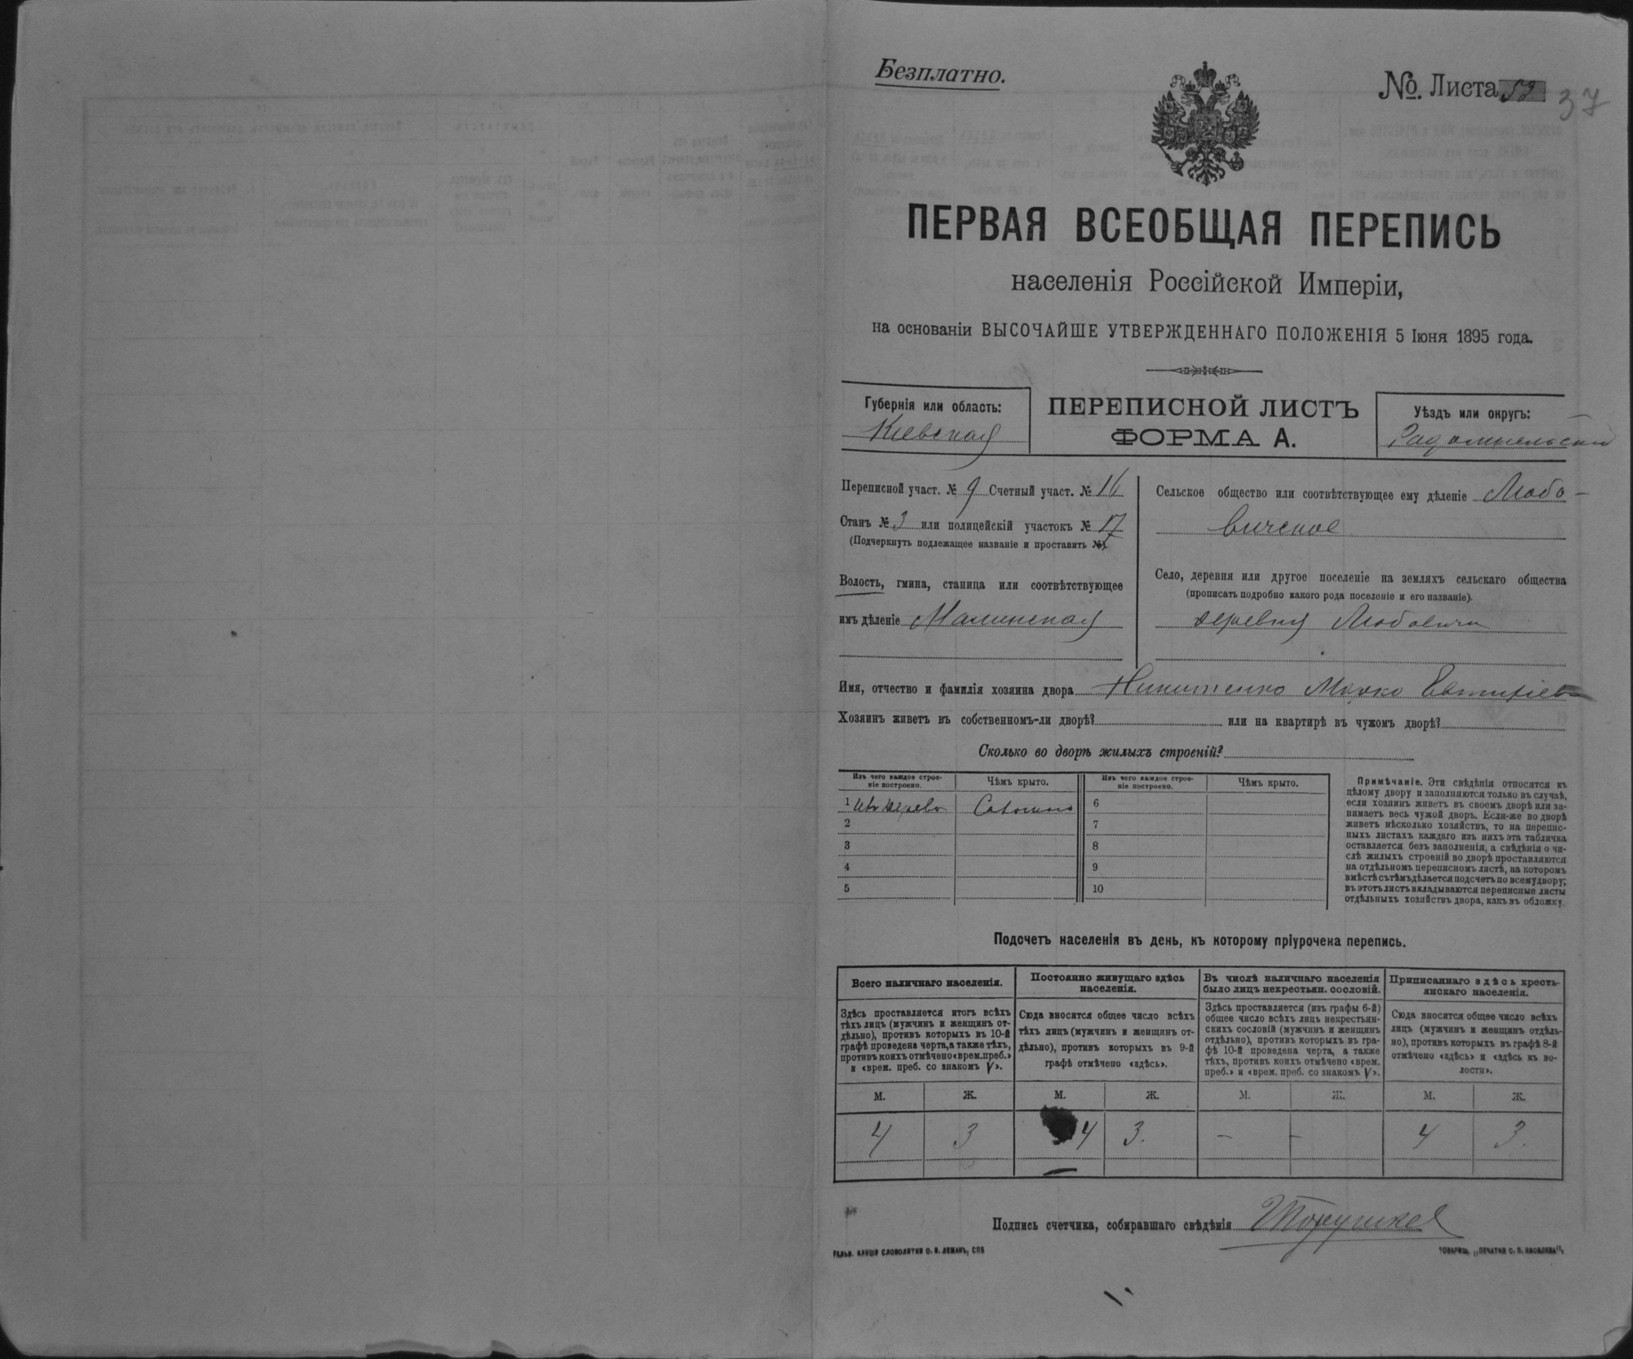 Безплатно.
№ Листа 53
37
ПЕРВАЯ ВСЕОБЩАЯ ПЕРЕПИСЬ
населенія Россійской Имперіи,
на основаніи ВЫСОЧАЙШЕ УТВЕРЖДЕННАГО ПОЛОЖЕНІЯ 5 Іюня 1895 года.
Губернія или область:
Кіевская
ПЕРЕПИСНОЙ ЛИСТЪ
ФОРМА А.
Уѣздъ или округъ:
Радомысльскій
Переписной участ. № 9 Счетный участ. № 16
Станъ № 3 или полицейскій участокъ № 17
(Подчеркнуть подлежащее названіе и проставить №)
Волость, гмина, станица или соотвѣтствующее
имъ дѣленіе Малинская
Сельское общество или соотвѣтствующее ему дѣленіе Любо-
вичское
Село, деревня или другое поселеніе на земляхъ сельскаго общества
(прописать подробно какого рода поселеніе и его названіе).
деревня Любовичи
Имя, отчество и фамилія хозяина двора Никитенко Марко Евтихіевъ
Хозяинъ живетъ въ собственномъ-ли дворѣ? или на квартирѣ въ чужомъ дворѣ?
Сколько во дворѣ жилыхъ строеній?
Изъ чего каждое строе-
ніе построено.
Чѣмъ крыто.
Изъ чего каждое строе-
ніе построено.
Чѣмъ крыто.
1 изъ дерева Соломою 6
2 7
3 8
4 9
5 10
Примѣчаніе. Эти свѣдѣнія относятся къ
цѣлому двору и заполняются только въ случаѣ,
если хозяинъ живетъ въ своемъ дворѣ или за-
нимаетъ весь чужой дворъ. Если-же во дворѣ
живетъ нѣсколько хозяйствъ, то на перепис-
ныхъ листахъ каждаго изъ нихъ эта табличка
оставляется безъ заполненія, а свѣдѣнія о чи-
слѣ жилыхъ строеній во дворѣ проставляются
на отдѣльномъ переписномъ листѣ, на которомъ
вмѣстѣ съ тѣмъ дѣлается подсчетъ по всему двору;
въ этотъ листъ вкладываются переписные листы
отдѣльныхъ хозяйствъ двора, какъ въ обложку.
Подсчетъ населенія въ день, къ которому пріурочена перепись.
Всего наличнаго населенія.
Здѣсь проставляется итогъ всѣхъ
тѣхъ лицъ (мужчинъ и женщинъ от-
дѣльно), противъ которыхъ въ 10-й
графѣ проведена черта, а также тѣхъ,
противъ коихъ отмѣчено «врем. преб.»
и «врем. преб. со знакомъ V».
Постоянно живущаго здѣсь
населенія.
Сюда вносится общее число всѣхъ
тѣхъ лицъ (мужчинъ и женщинъ от-
дѣльно), противъ которыхъ въ 9-й
графѣ отмѣчено «здѣсь».
Въ числѣ наличнаго населенія
было лицъ некрестьян. сословій.
Здѣсь проставляется (изъ графы 6-й)
общее число всѣхъ лицъ некрестьян-
скихъ сословій (мужчинъ и женщинъ
отдѣльно), противъ которыхъ въ гра-
фѣ 10-й проведена черта, а также
тѣхъ, противъ коихъ отмѣчено «врем.
преб.» и «врем. преб. со знакомъ V».
Приписаннаго здѣсь кресть-
янскаго населенія.
Сюда вносится общее число всѣхъ
лицъ (мужчинъ и женщинъ отдѣль-
но), противъ которыхъ въ графѣ 8-й
отмѣчено «здѣсь» и «здѣсь въ во-
лости».
М. Ж. М. Ж. М. Ж. М. Ж.
4 3 4 3. – – 4 3.
Подпись счетчика, собиравшаго свѣдѣнія
ТОВАРИЩ. „ПЕЧАТНЯ С. П. ЯКОВЛЕВА“.